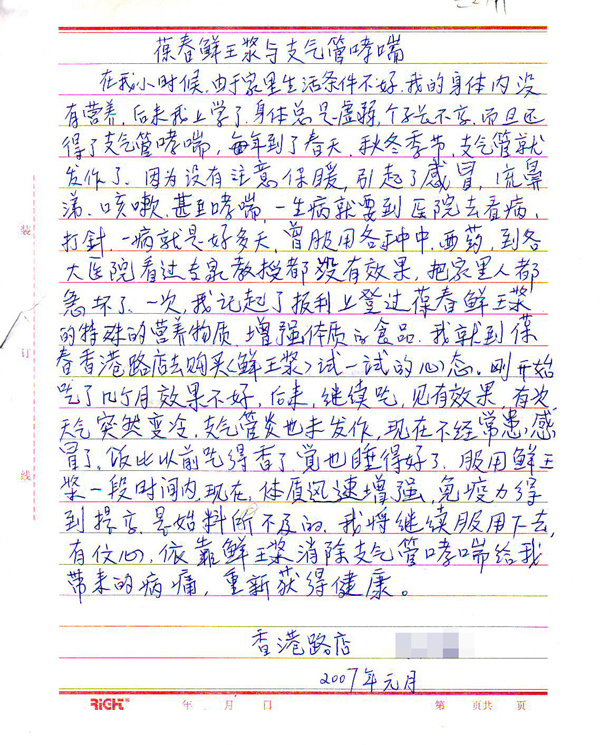 葆春鲜王浆与支气管哮喘
在我小时候，由于家里生活条件不好，我的身体内没
有营养，后来我上学了，身体总是虚弱，个子长不高，而且还
得了支气管哮喘，每年到了春天，秋冬季节，支气管就
发作了，因为没有注意保暖，引起了感冒，流鼻
涕，咳嗽，甚至哮喘，一生病就要到医院去看病，
打针，一病就是好多天，曾服用各种中，西药，到各
大医院看过专家教授都没有效果，把家里人都
急坏了，一次，我记起了报刊上登过葆春鲜王浆
的特殊的营养物质，增强体质的食品，我就到葆
春香港路店去购买《鲜王浆》试一试的心态，刚开始
吃了几个月效果不好，后来，继续吃，见有效果，有次
天气突然变冷，支气管炎也未发作，现在不经常患感
冒了，饭比以前吃得香了，觉也睡得好了，服用鲜王
浆一段时间内，现在，体质迅速增强，免疫力得
到提高，是始料所不及的，我将继续服用下去，
有信心，依靠鲜王浆消除支气管哮喘给我
带来的病痛，重新获得健康。
香港路店
2007年元月
装
订
线
RIGHT 年 月 日 第 页共 页